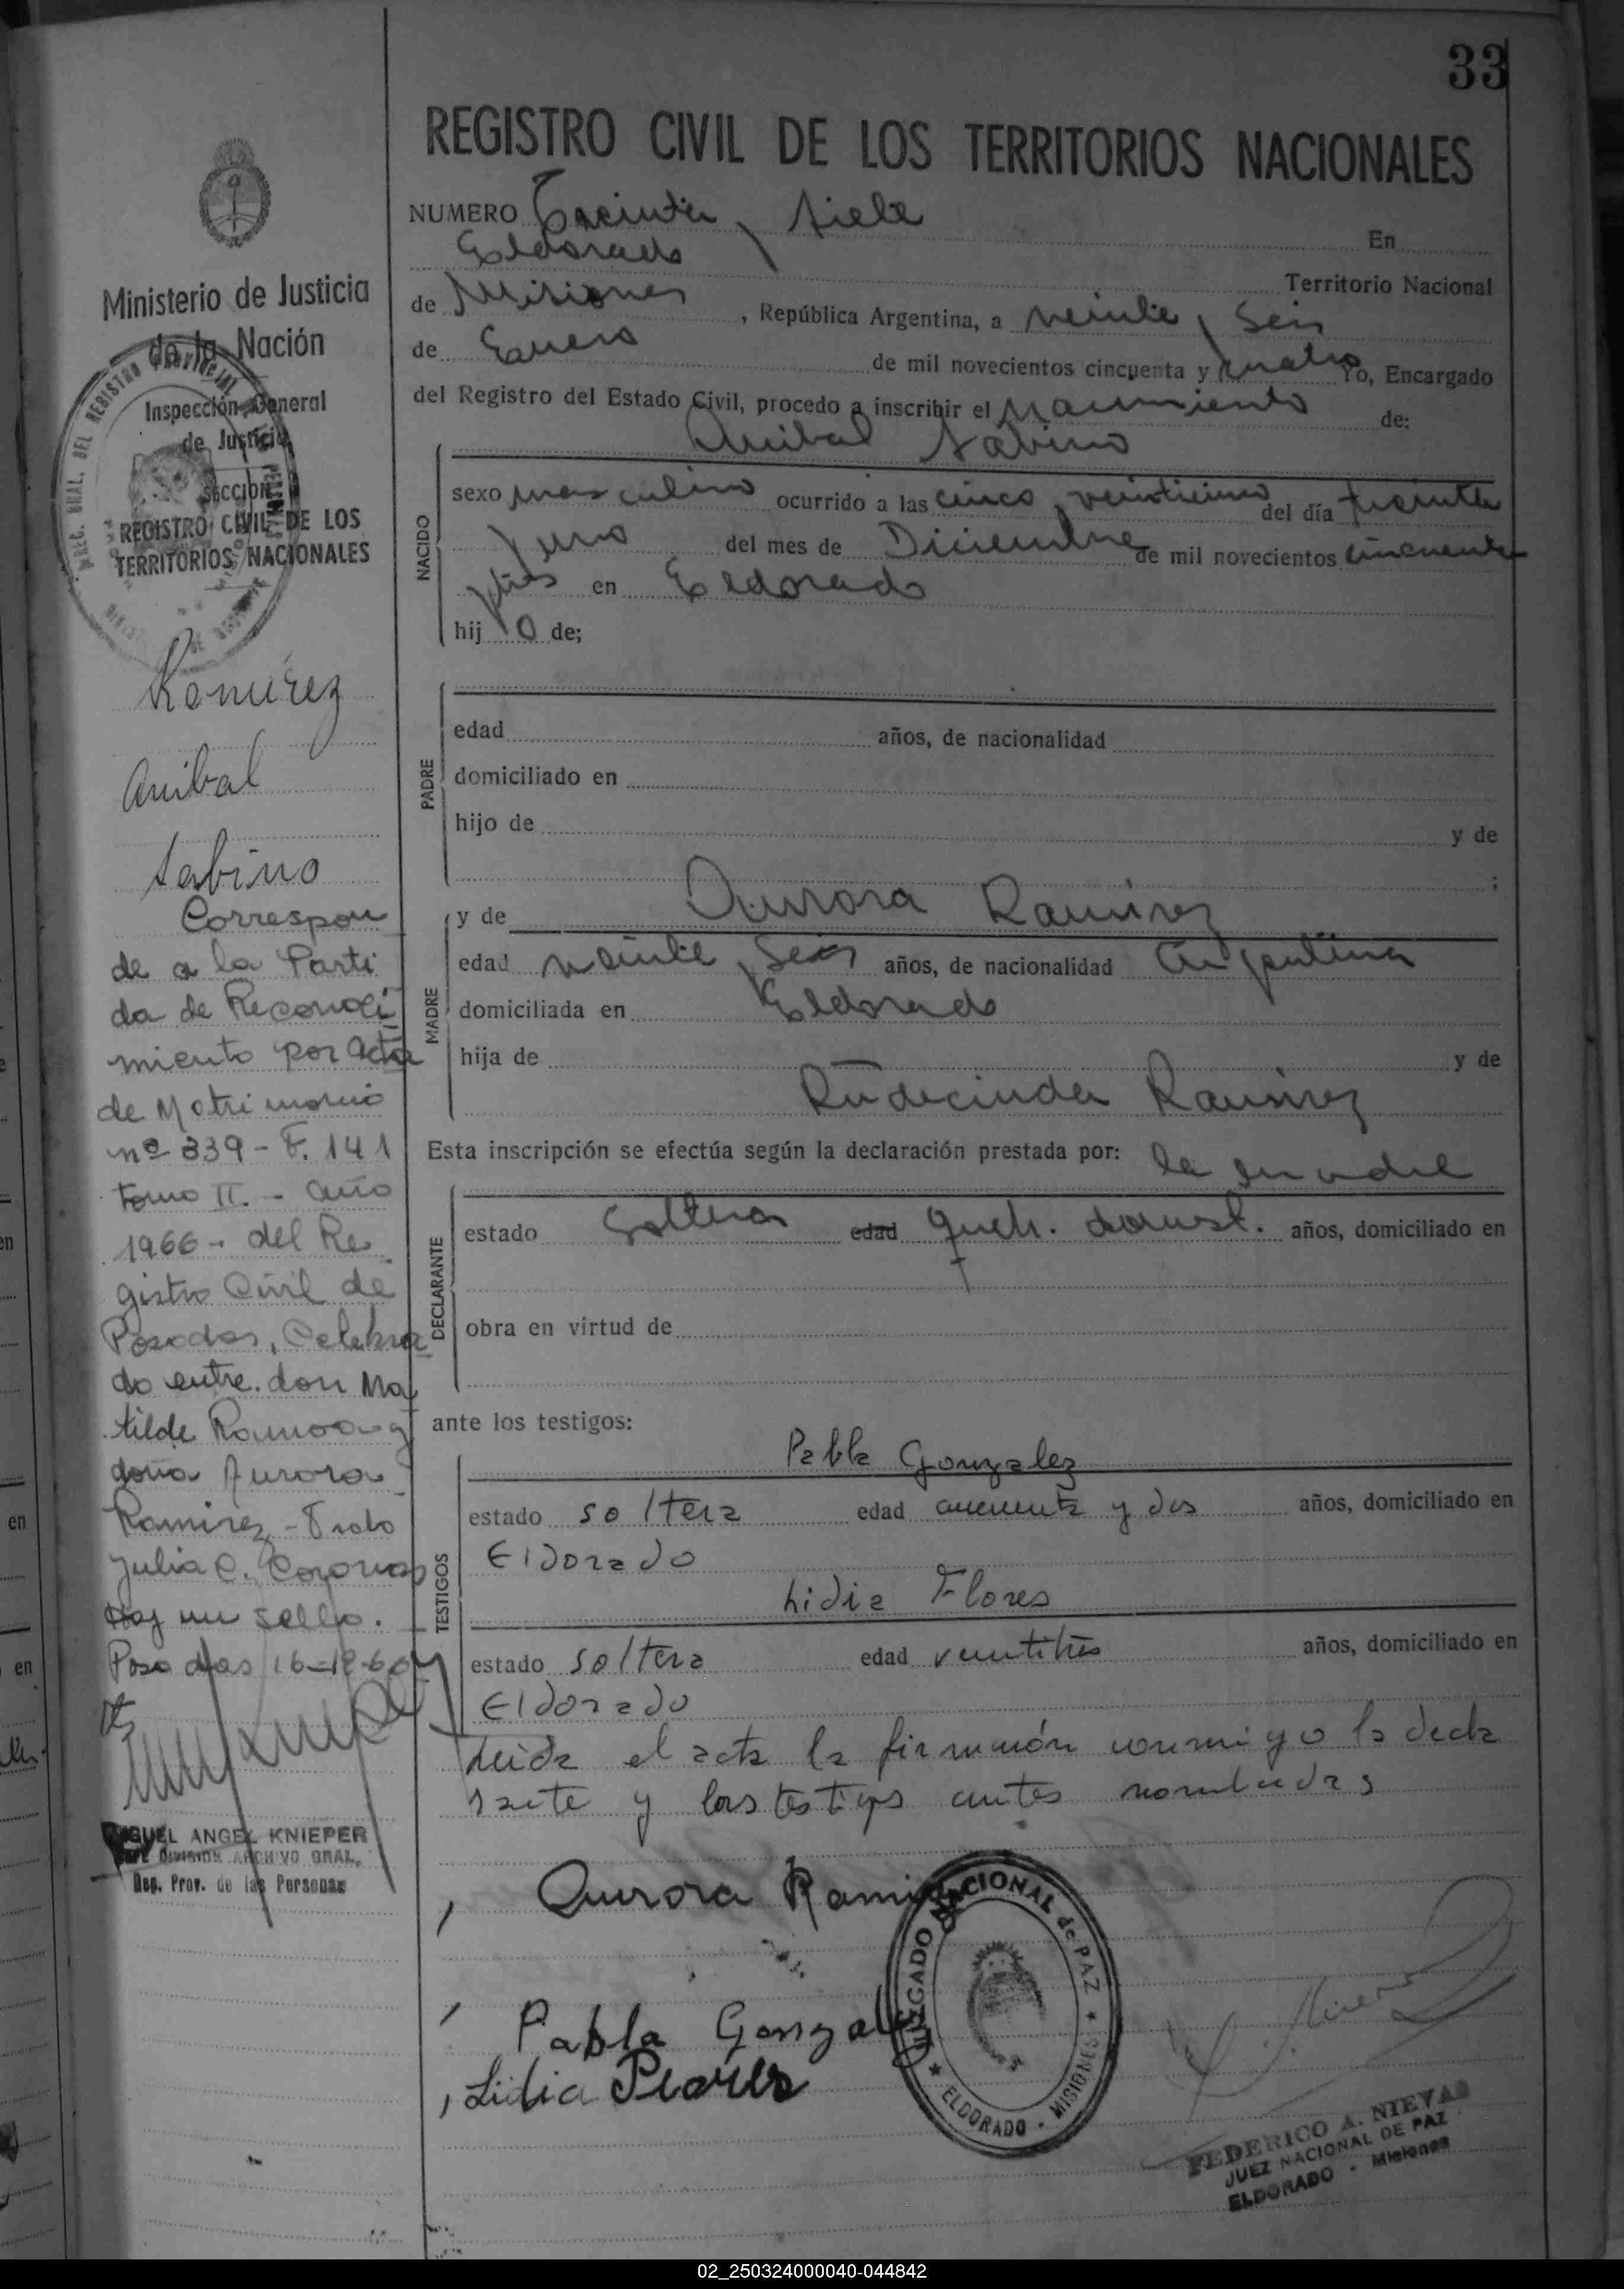 33
REGISTRO CIVIL DE LOS TERRITORIOS NACIONALES
NUMERO Treinta y siete
En
Eldorado
Territorio Nacional
de Misiones, República Argentina, a veinte y seis
de Enero de mil novecientos cincuenta y cuatro Yo, Encargado
del Registro del Estado Civil, procedo a inscribir el nacimiento de:
Anibal Sabino
NACIDO
sexo masculino ocurrido a las cinco y veinticinco del día treinta
y uno del mes de Diciembre de mil novecientos cincuenta
y tres en Eldorado
hijo de;
PADRE
edad años, de nacionalidad
domiciliado en
hijo de y de
;
MADRE
y de Aurora Ramirez
edad veinte y seis años, de nacionalidad Argentina
domiciliada en Eldorado
hija de y de
Rudecinda Ramirez
Esta inscripción se efectúa según la declaración prestada por: la madre
DECLARANTE
estado Soltera edad queh. domest. años, domiciliado en
obra en virtud de
ante los testigos:
TESTIGOS
Pabla Gonzalez
estado soltera edad cincuenta y dos años, domiciliado en
Eldorado
Lidia Flores
estado soltera edad veintitrés años, domiciliado en
Eldorado
Leida el acta la firman conmigo la decla
rante y las testigos antes nombradas
Aurora Ramirez
Pabla Gonzalez
Lidia Flores
JUZGADO NACIONAL de PAZ
ELDORADO - MISIONES
FEDERICO A. NIEVAS
JUEZ NACIONAL DE PAZ
ELDORADO - Misiones
Ministerio de Justicia
de la Nación
Inspección General
de Justicia
SECCION
REGISTRO CIVIL DE LOS
TERRITORIOS NACIONALES
Ramírez
Anibal
Sabino
Correspon
de a la Parti
da de Reconoci
miento por acta
de Matrimonio
nº 339 - F. 141
Tomo II. - año
1966 - del Re
gistro Civil de
Posadas, Celebra
do entre don Ma
tilde Ramoa y
doña Aurora
Ramirez -
Julia C.
Hay un sello.
Posadas 16-12-
MIGUEL ANGEL KNIEPER
JEFE DIVISION ARCHIVO GRAL.
Reg. Prov. de las Personas
02_250324000040-044842